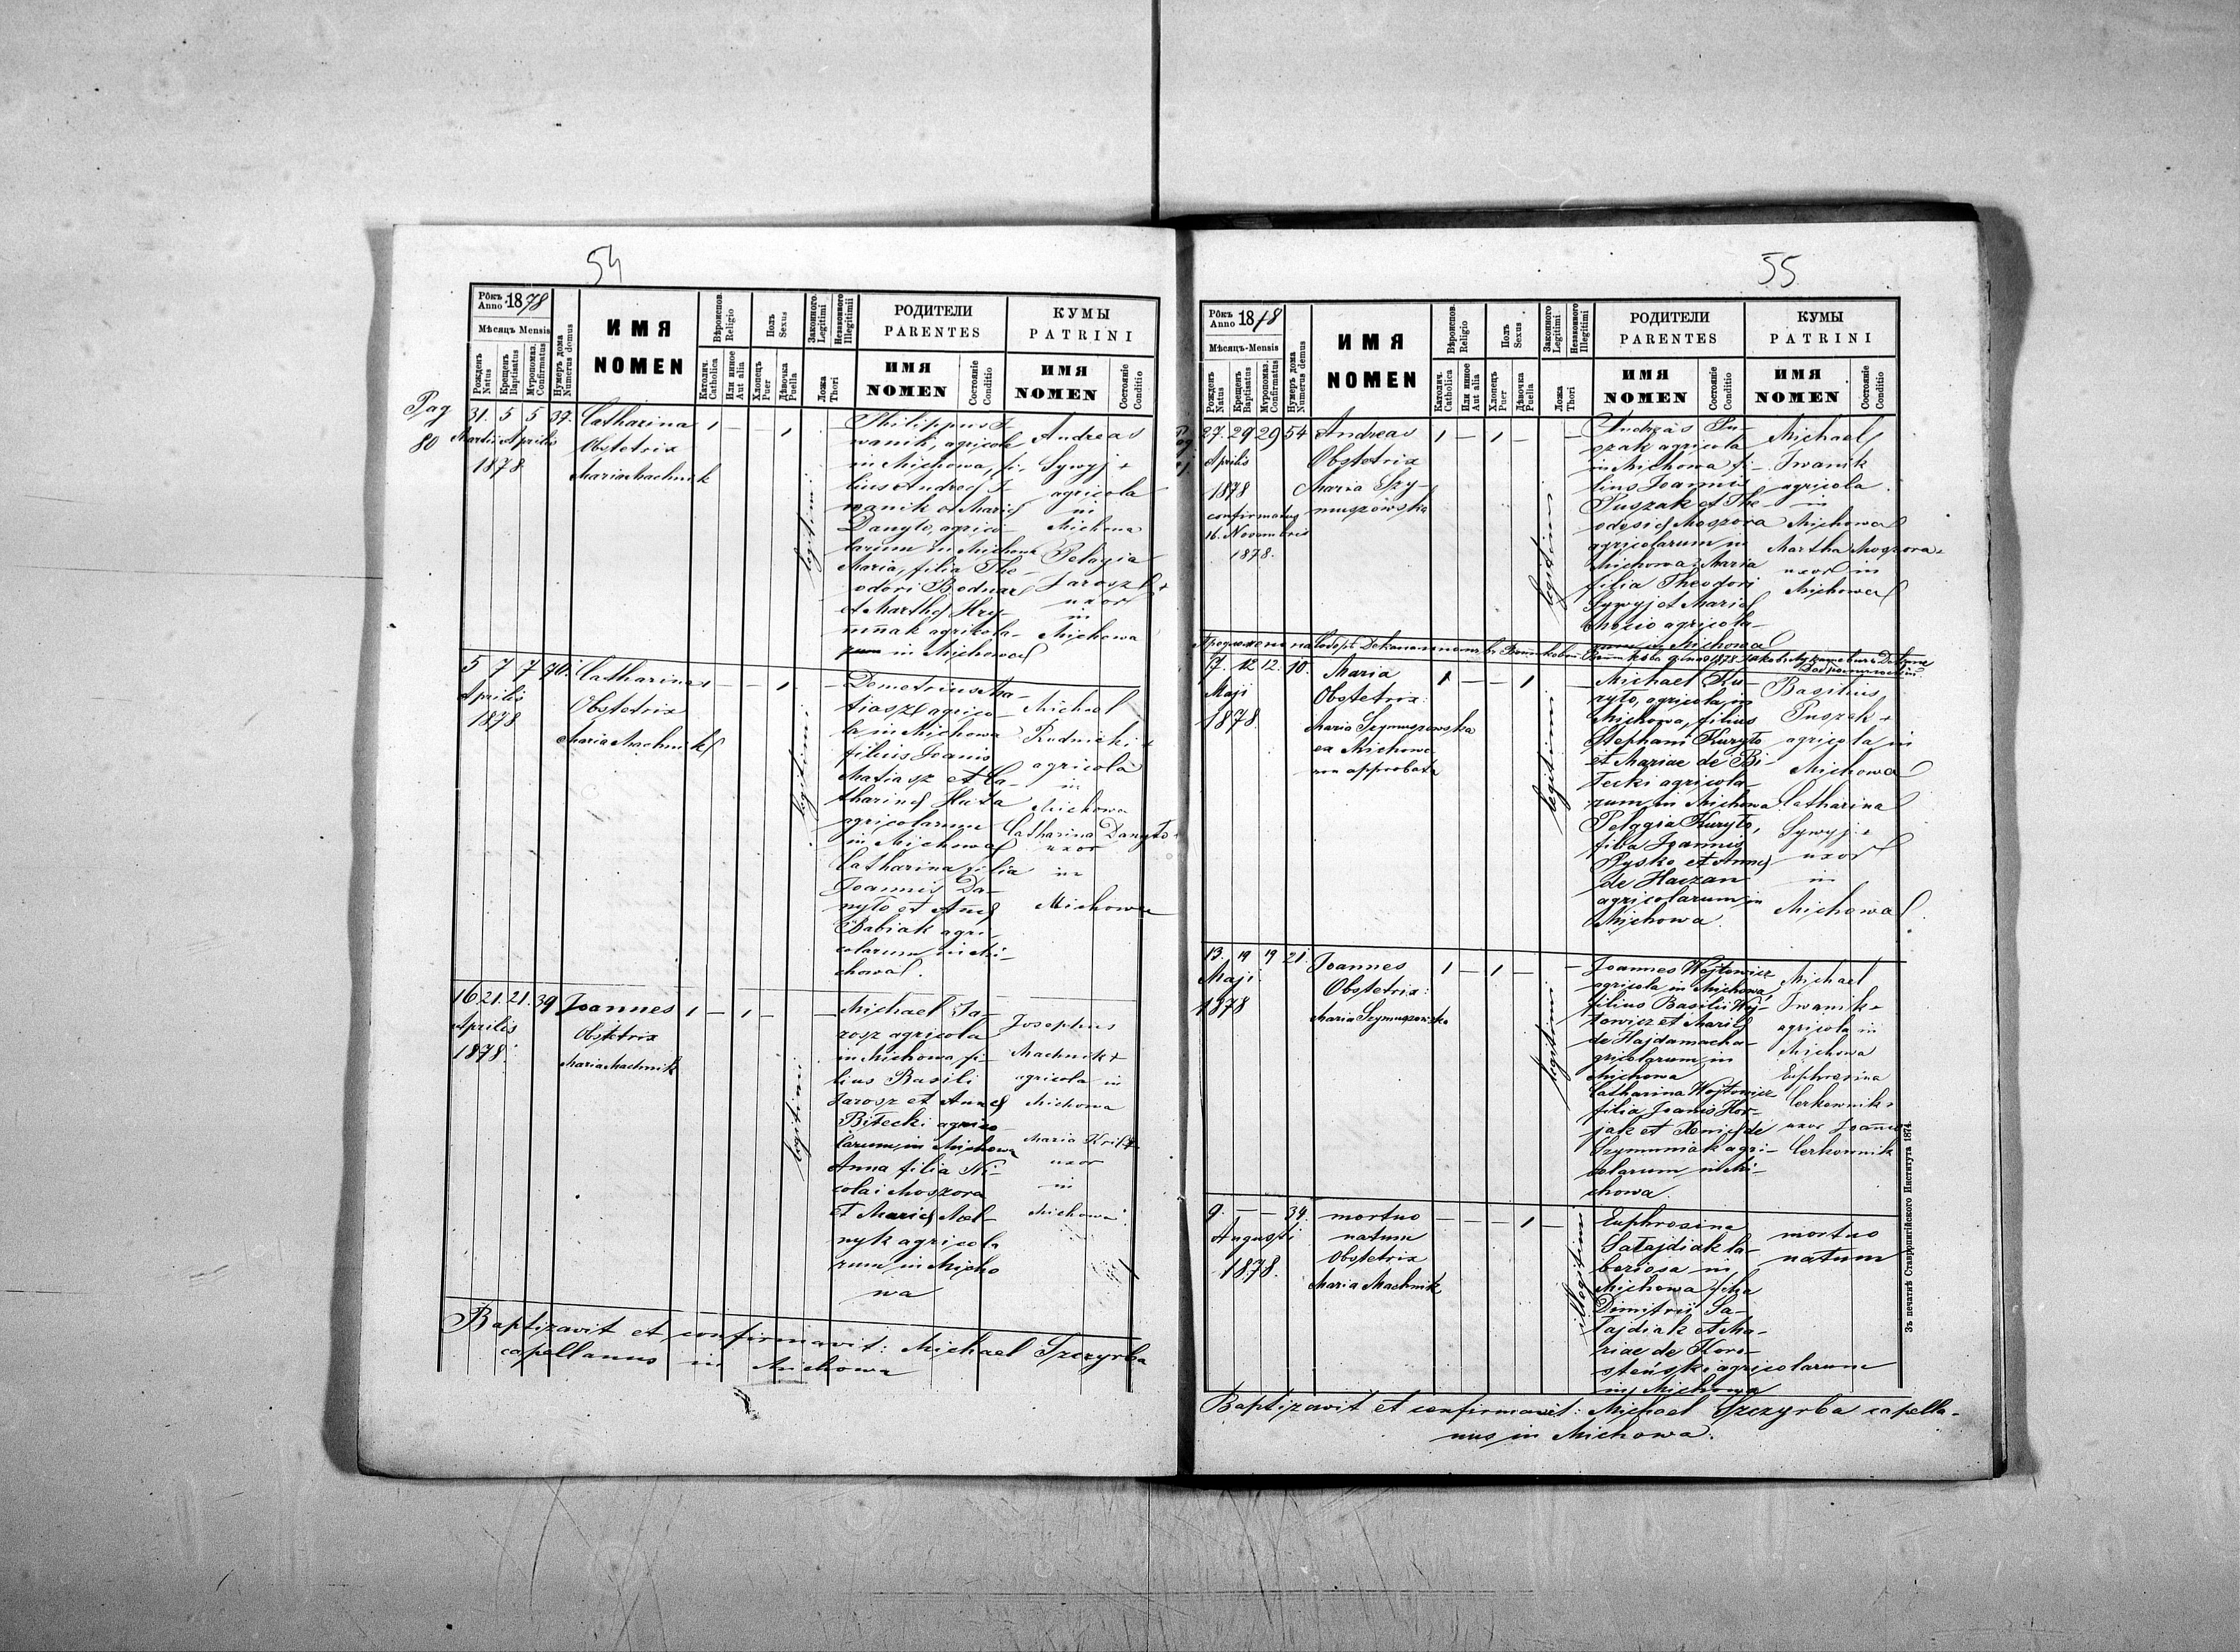 54
Рôкъ
Anno 1878
Мѣсяцъ Mensis
Рожденъ
Natus
Крещенъ
Baptisatus
Муропомаз.
Confirmatus
Нумеръ дома
Numerus domus
ИМЯ
NOMEN
Вѣроиспов.
Religio
Католич.
Catholica
Или иное
Aut alia
Полъ
Sexus
Хлопецъ
Puer
Дѣвочка
Puella
Законного
Legitimi
Незаконного
Illegitimii
Ложа
Thori
РОДИТЕЛИ
PARENTES
ИМЯ
NOMEN
Состояніе
Conditio
КУМЫ
PATRINI
ИМЯ
NOMEN
Состояніе
Conditio
Pag
80
31. 5 5 37. Catharina 1 — — 1
Martii Aprilis
1878
Obstetrix
Maria Machnik
legitimi
Philippus I-
wanik, agricola
in Michowa, fi-
lius Andreą I-
wanik et Marię
Danyło, agrico-
larum in Michowa
Maria, filia The-
odori Bodnar
et Marthę Hry-
niñak agricola-
rum in Michowa
Andreas
Sywyj +
agricola
in
Michowa
Pelagia
Jarosz +
uxor
in
Michowa
5 7 7 70. Catharina 1 — — 1 —
Aprilis
1878
Obstetrix
Maria Machnik
legitimi
Demetrius Ma-
tiasz agrico-
la in Michowa
filius Joanis
Matiasz et Ca-
tharinę Huta
agricolarum
in Michowa
Catharina filia
Joannis Da-
nyło et Añę
Babiak agri-
colarum in Mi-
chowa.
Michael
Rudnicki +
agricola
in
Michowa
Catharina Danyło +
uxor
in
Michowa
16 21. 21. 39 Joannes 1 — 1 — —
Aprilis
1878.
Obstetrix
Maria Machnik
legitimi
Michael Ja-
rosz agricola
in Michowa fi-
lius Basili
Jarosz et Annę
Bitecki agrico-
larum in Michowa
Anna filia Ni-
colai Moszora
et Marię Mel-
nyk agricola
rum in Micho
wa
Josephus
Machnik +
agricola in
Michowa
Maria
uxor
in
Michowa.
Baptizavit et confirmavit: Michael Szczyrba
capellanus in Michowa
55
Рôкъ
Anno 1878
Мѣсяцъ-Mensis
Рожденъ
Natus
Крещенъ
Baptisatus
Муропомаз.
Confirmatus
Нумеръ дома
Numerus domus
ИМЯ
NOMEN
Вѣроиспов.
Religio
Католич.
Catholica
Или иное
Aut alia
Полъ
Sexus
Хлопецъ
Puer
Дѣвочка
Puella
Законного
Legitimi
Незаконного
Illegitimi
Ложа
Thori
РОДИТЕЛИ
PARENTES
ИМЯ
NOMEN
Состояніе
Conditio
КУМЫ
PATRINI
ИМЯ
NOMEN
Состояніе
Conditio
27. 29 29 54 Andreas 1 — 1 — —
Aprilis
1878
confirmatus
16. Novembris
1878.
Obstetrix
Maria Szy-
muszowska
legitimi
Andreas Pu-
szak agricola
in Michowa fi-
lius Joannis
Puszak et The-
odosię Moszora
agricolarum in
Michowa; Maria
filia Theodori
Sywyj et Marię
agricola-
rum in Michowa
Michael
Iwanik
agricola
in
Michowa
Martha Moszora +
uxor in
Michowa
7. 12 12. 10. Maria 1 — — 1 —
Maji
1878
Obstetrix:
Maria Szymuszowska
ex Michowa
non approbata
legitimi
Michael Ku-
ryło, agricola in
Michowa, filius
Stephani Kuryło
et Mariae de Bi-
tecki agricola-
rum in Michowa
Pelagia Kuryło,
filia Joannis
Pysko et Annę
de Haczan
agricolarum in
Michowa.
Basilius
Puszak +
agricola in
Michowa
Catharina
Sywyj +
uxor
in
Michowa.
13. 19 19 21. Joannes 1 — 1 — —
Maji
1878
Obstetrix:
Maria Szymuszowska
legitimi
Joannes Wojtowicz
agricola in Michowa,
filius Basilii Woj-
towicz et Marię
de Hajdamacha-
gricolarum in
Michowa
Catharina Wojtowicz
filia Joanis Hor-
jak et Xenię de
Szymuniak agri-
colarum in Mi-
chowa.
Michael
Iwanik +
agricola in
Michowa
Euphrosina
Cerkownik +
uxor Joannis
Cerkownik
9. — — 34. mortuo — — — 1 —
Augusti
1878.
natum
Obstetrix
Maria Machnik
illegitimi
Euphrosina
Sałajdiak la-
boriosa in
Michowa filia
Dimitrii Sa-
łajdiak et Ma-
riae de Koro-
steński agricolarum
in Michowa
mortuo
natum
Baptizavit et confirmavit: Michael Szczyrba capella-
nus in Michowa.
Зъ печатнѣ Ставропигійского Института 1874.